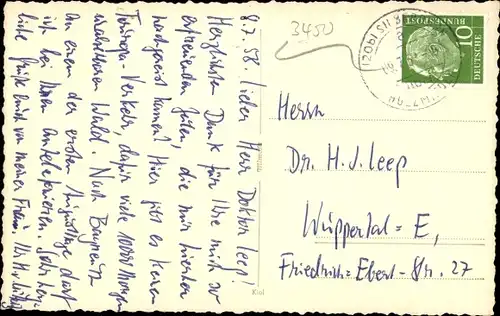 8.7.58. Lieber Herr Doktor Leep!
Herzlichsten Dank für Ihre mich so
erfreuenden Zeilen, die mir hierher
nachgereist kamen! Hier gibt es keinen
Verkehr, dafür viele 1000 Morgen
Wald. Nach Bayreuth
an einem der ersten Augusttage darf
ich bei Ihnen antelefonieren. Sehr herz-
liche Grüße auch von meiner Frau. Ihr
3450
DEUTSCHE
BUNDESPOST
10
Herrn
Dr. H. J. Leep
Wuppertal=E,
Friedrich=Ebert-Str. 27